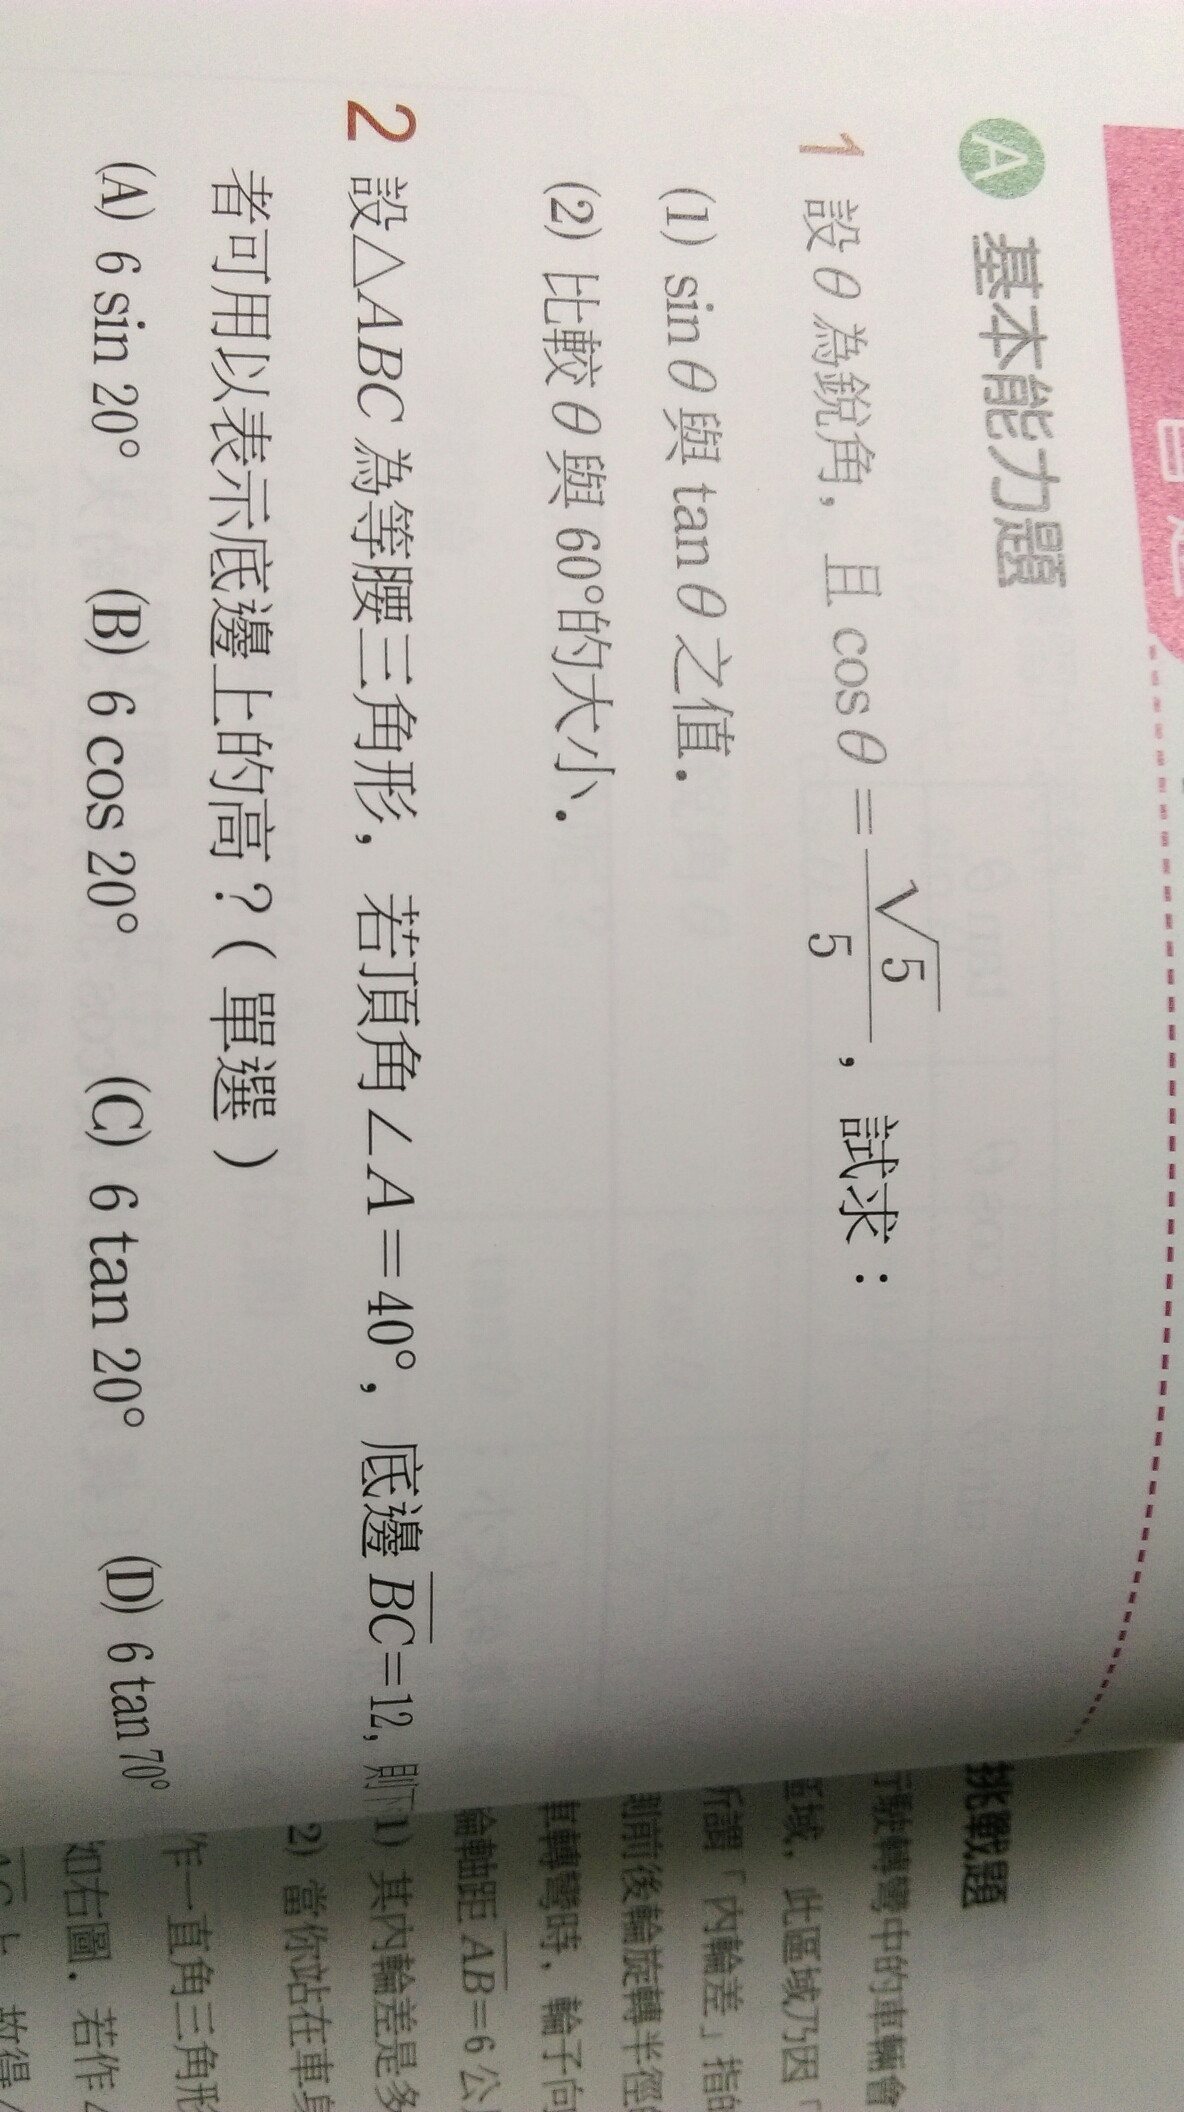 習題
A 基本能力題
1 設θ為銳角，且 cosθ = √5/5，試求：
(1) sinθ與 tanθ之值．
(2) 比較θ與 60°的大小．
2 設△ABC 為等腰三角形，若頂角∠A＝40°，底邊BC＝12，則下
者可用以表示底邊上的高？（單選）
(A) 6 sin 20° (B) 6 cos 20° (C) 6 tan 20° (D) 6 tan 70°
挑戰題
行駛轉彎中的車輛會
區域，此區域乃因「
所謂「內輪差」指的
則前後輪旋轉半徑
車轉彎時，輪子向
輪軸距AB＝6 公
1) 其內輪差是多
2) 當你站在車身
作一直角三角形
如右圖．若作
故得